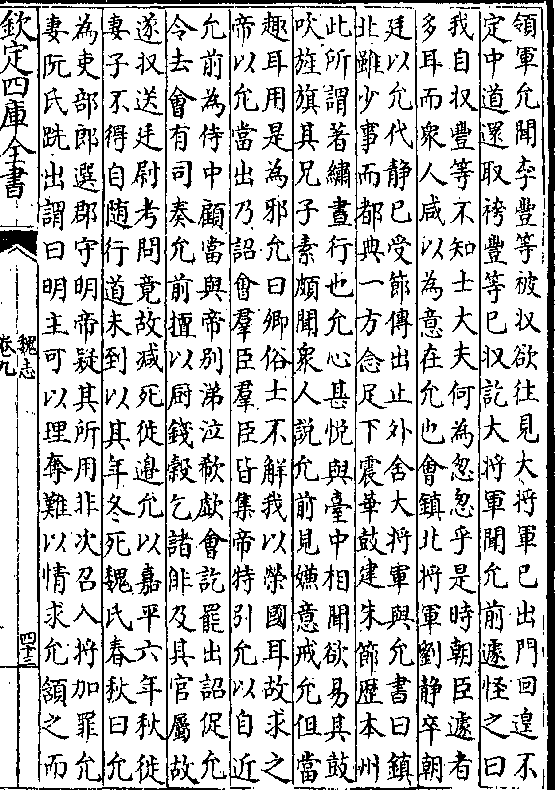 領軍允聞李豐等被収欲往見大將軍已出門回遑不
定中道還取袴豐等已収訖大將軍聞允前遽怪之曰
我自収豐等不知士大夫何為忽忽乎是時朝臣遽者
多耳而衆人咸以為意在允也會鎮北將軍劉静卒朝
廷以允代静已受節傳出止外舍大將軍與允書曰鎮
北雖少事而都典一方念足下震華鼓建朱節歴本州
此所謂著繡晝行也允心甚悦與臺中相聞欲易其鼓
吹旌旗其兄子素頗聞衆人説允前見嫌意戒允但當
趣耳用是為邪允曰卿俗士不解我以榮國耳故求之
帝以允當出乃詔會羣臣羣臣皆集帝特引允以自近
允前為侍中顧當與帝別涕泣歔欷會訖罷出詔促允
令去會有司奏允前擅以厨錢榖乞諸俳及其官屬故
遂収送廷尉考問竟故减死徙邉允以嘉平六年秋徙
妻子不得自随行道未到以其年冬死魏氏春秋曰允
為吏部郎選郡守明帝疑其所用非次召入將加罪允
妻阮氏跣出謂曰明主可以理奪難以情求允頷之而
欽定四庫全書
魏志
卷九
四十三